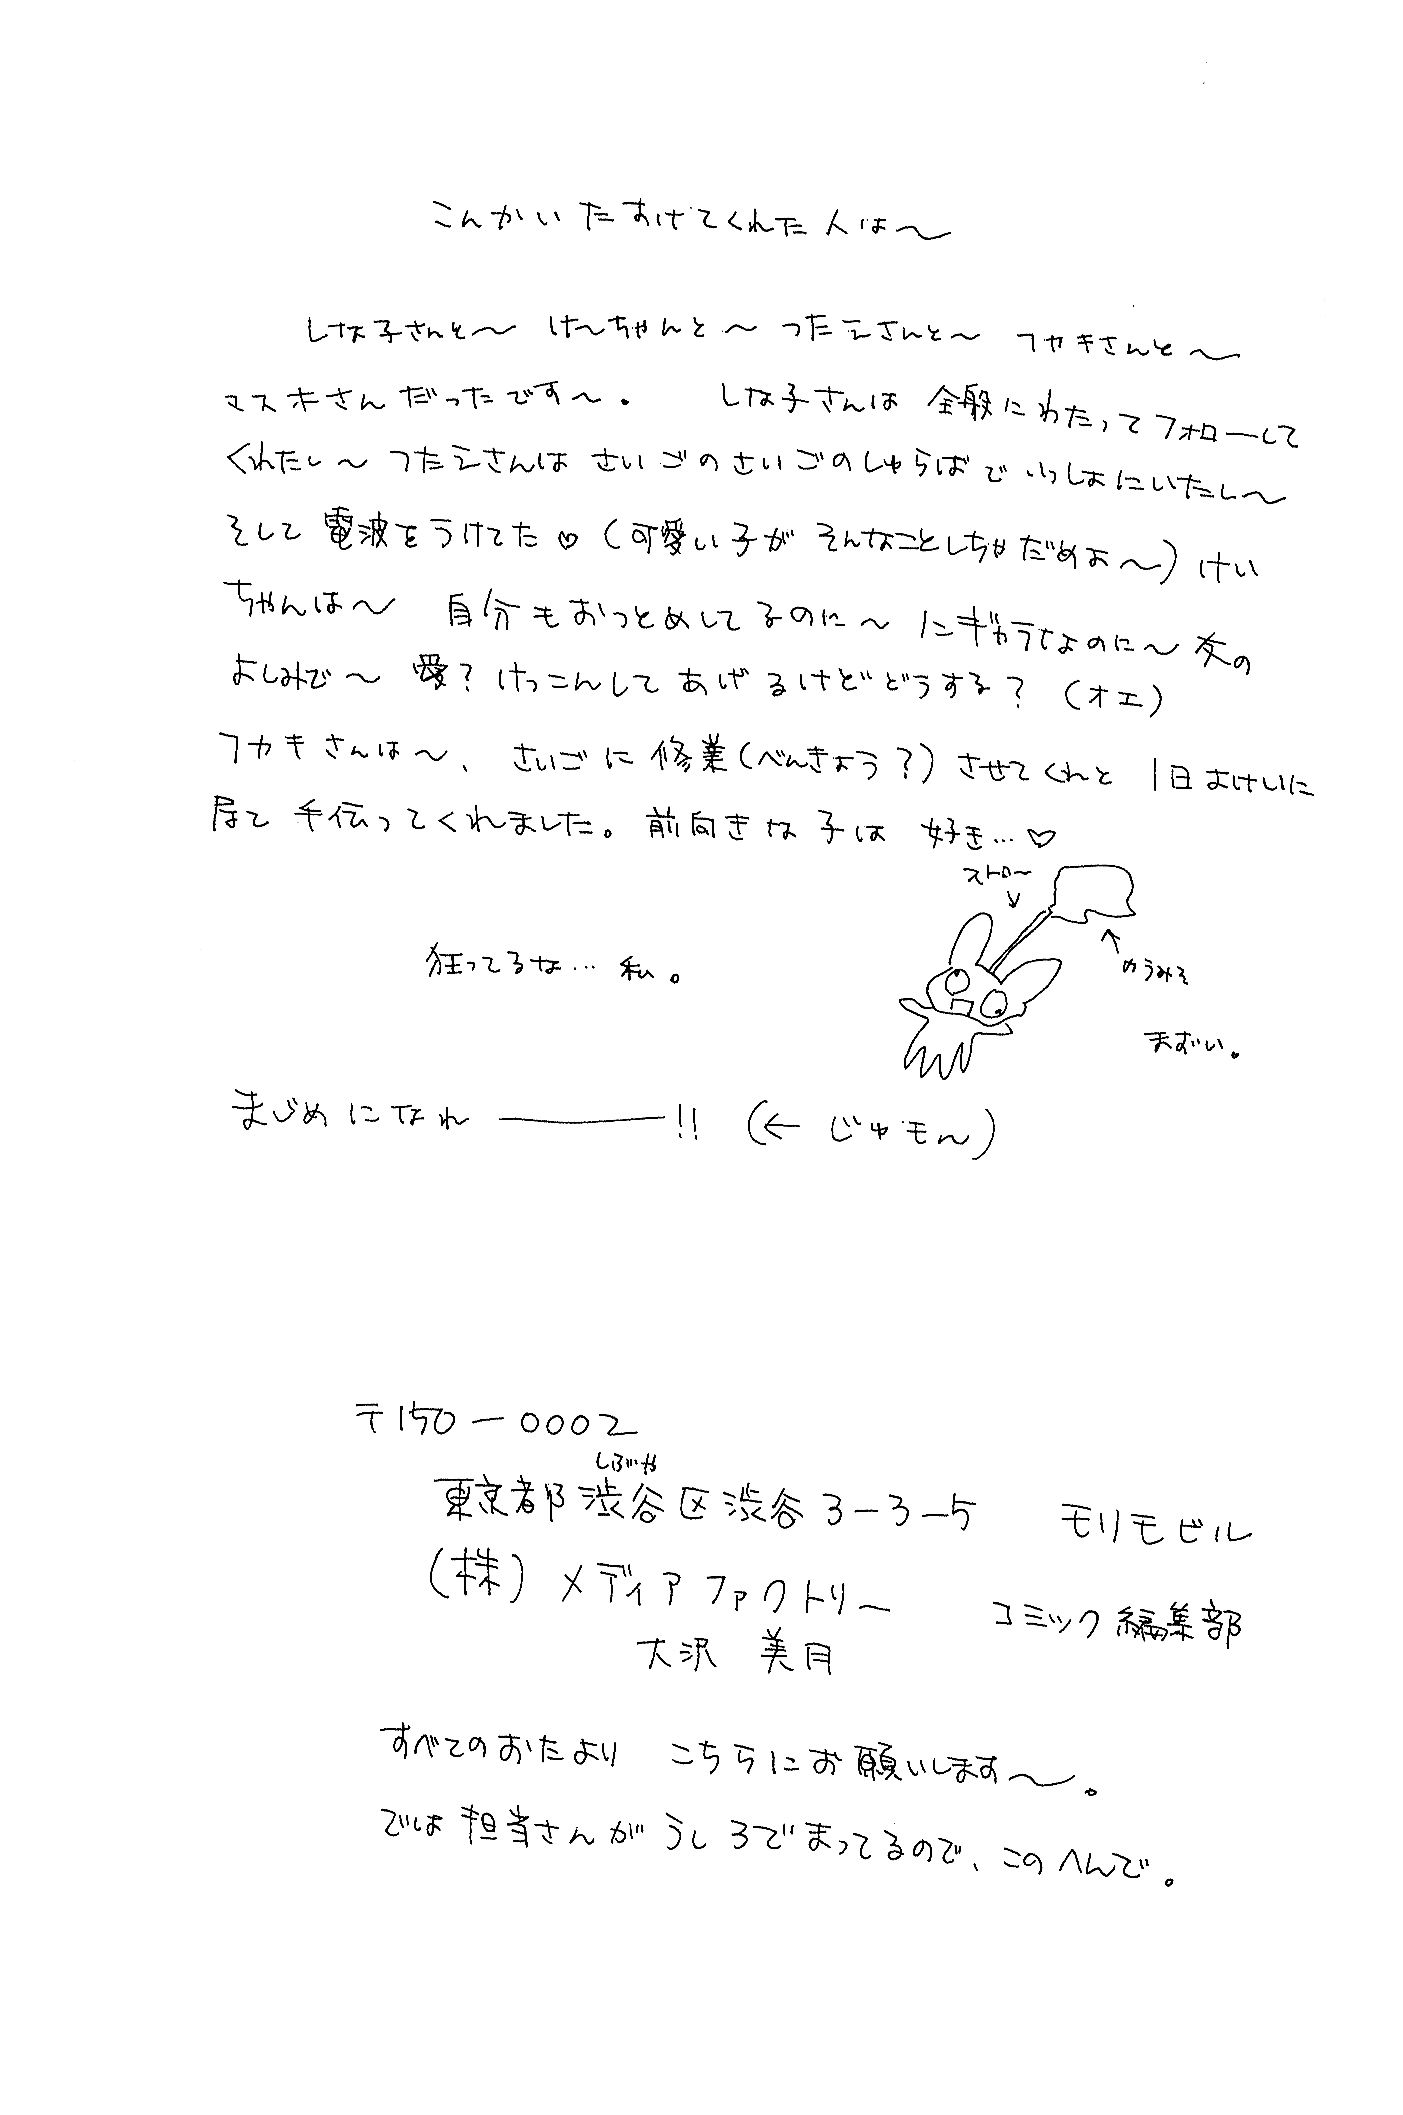 こんかいたすけてくれた人は〜
しな子さんと〜 け〜ちゃんと〜 つたえさんと〜 フカキさんと〜
マスホさんだったです〜。 しな子さんは全般にわたってフォローして
くれたし〜つたえさんはさいごのさいごのしゅらばでいっしょにいたし〜
そして電波をうけてた♡(可愛い子がそんなことしちゃだめよ〜)けい
ちゃんは〜 自分もおつとめしてるのに〜 ノニギカラなのに〜 友の
よしみで〜 愛?けっこんしてあげるけどどうする?(オエ)
フカキさんは〜、さいごに修業(べんきょう?)させてくれと1日よけいに
居て手伝ってくれました。前向きな子は好き…♡
ストロー
のうみそ
狂ってるな…私。
まずい。
まじめになれ――――!! (← じゅモん)
〒150-0002
しぶや
東京都渋谷区渋谷3-3-5 モリモビル
(株)メディアファクトリー コミック編集部
大沢 美月
すべてのおたより こちらにお願いします〜。
では担当さんがうしろでまってるので、このへんで。